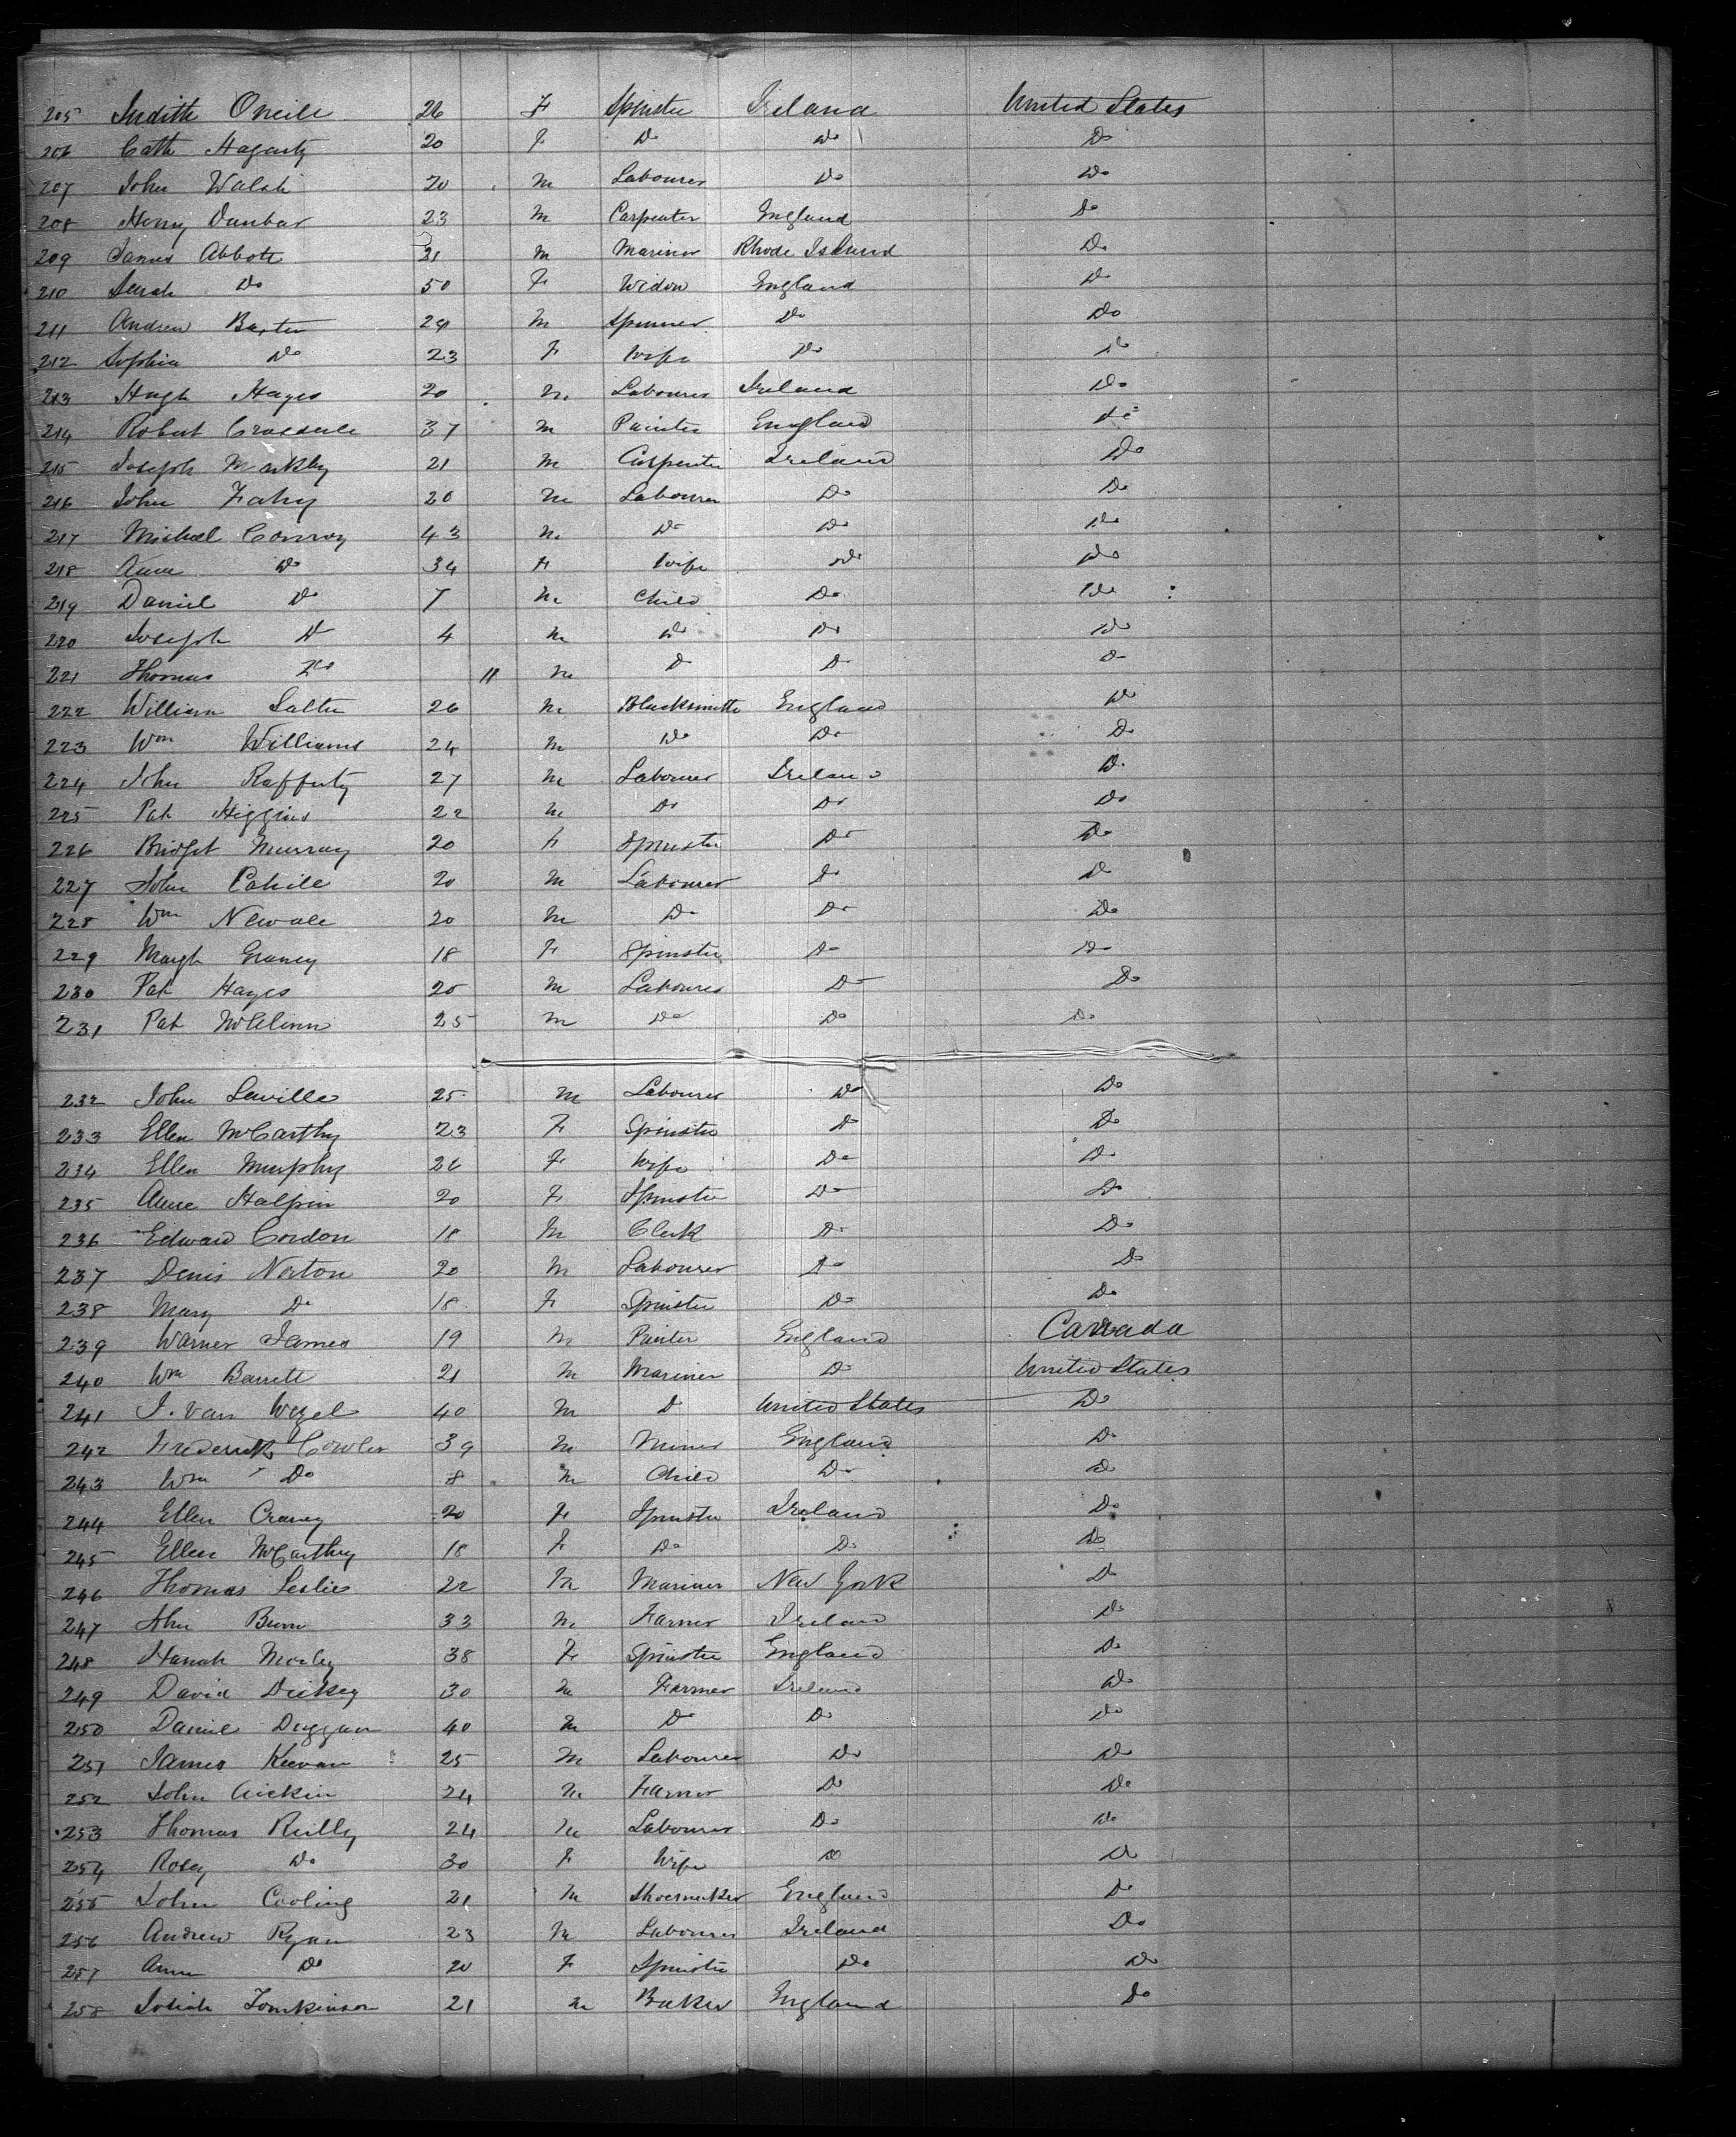 205 Judith Oneile 26 F Spinster Ireland United States
206 Cath Hagarty 20 F Do Do Do
207 John Walsh 20 M Labourer Do Do
208 Henry Dunbar 23 M Carpenter England Do
209 James Abbott 31 M Mariner Rhode Island Do
210 Sarah Do 50 F Widow England Do
211 Andrew Baxter 29 M Spinner Do Do
212 Sophia Do 23 F Wife Do Do
213 Hugh Hayes 20 M Labourer Ireland Do
214 Robert 37 M Painter England Do
215 Joseph Markby 21 M Carpenter Ireland Do
216 John Fahy 20 M Labourer Do Do
217 Michael Conroy 43 M Do Do Do
218 Anne Do 34 F Wife Do Do
219 Daniel Do 7 M Child Do Do
220 Joseph D 4 M Do Do Do
221 Thomas Do 11 M D D D
222 William Salter 26 M Blacksmith England Do
223 Wm Williams 24 M Do Do Do
224 John Rafferty 27 M Labourer Ireland Do
225 Pat Higgins 22 M Do Do Do
226 Bridget Murray 20 F Spinster Do Do
227 John Cahile 20 M Labourer Do Do
228 Wm Newale 20 M Do Do Do
229 Margt Graney 18 F Spinster Do Do
230 Pat Hayes 20 M Labourer Do Do
231 Pat McGlinn 25 M Do Do Do
232 John Saville 25 M Labourer Do Do
233 Ellen McCarthy 23 F Spinster D Do
234 Ellen Murphy 26 F Wife Do Do
235 Anne Halpin 20 F Spinster Do Do
236 Edward Cordon 18 M Clerk Do Do
237 Denis Norton 20 M Labourer Do Do
238 Mary Do 18 F Spinster Do Do
239 Warner James 19 M Painter England Canada
240 Wm Barrett 21 M Mariner Do United States
241 J. Van Wezel 40 M D United States Do
242 Frederick Cowler 39 M Miner England Do
243 Wm Do 8 M Child Do Do
244 Ellen Craney 20 F Spinster Ireland Do
245 Ellen McCarthy 18 F Do Do Do
246 Thomas Leslie 22 M Mariner New York Do
247 John Burn 33 M Farmer Ireland Do
248 Hanah Morley 38 F Spinster England Do
249 David Dickey 30 M Farmer Ireland Do
250 Daniel Duggan 40 M Do Do Do
251 James Keevan 25 M Labourer Do Do
252 John Aickin 24 M Farmer Do Do
253 Thomas Reilly 24 M Labourer Do Do
254 Rosey Do 30 F Wife Do Do
255 John Cooling 21 M Shoemaker England Do
256 Andrew Ryan 23 M Labourer Ireland Do
257 Ann Do 20 F Spinster Do Do
258 Josiah Tomkinson 21 M Baker England Do